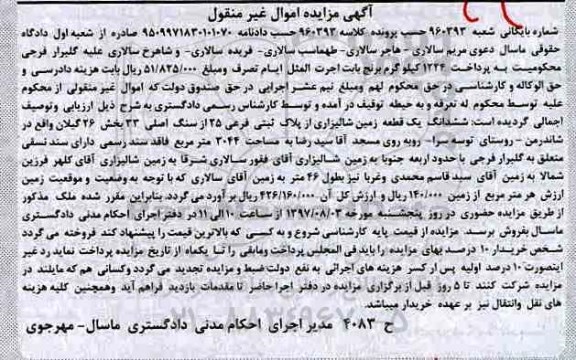 آگهی مزایده اموال غیر منقول
شماره بایگانی شعبه ۹۶۰۳۹۳ حسب پرونده کلاسه ۹۶۰۳۹۳ حسب دادنامه ۹۵۰۹۹۷۱۸۳۰۱۰۱۰۷۰ صادره از شعبه اول دادگاه
حقوقی ماسال دعوی مریم سالاری - هاجر سالاری- طهماسب سالاری- فریده سالاری- و شاهرخ سالاری علیه گلیرار فرجی
محکومیت به پرداخت ۱۲۲۴ کیلو گرم برنج بابت اجرت المثل ایام تصرف ومبلغ ۵۱/۸۲۵/۰۰۰ ریال بابت هزینه دادرسی و
حق الوکاله و کارشناسی در حق محکوم لهم ومبلغ نیم عشر اجرایی در حق صندوق دولت که اموال غیر منقولی از محکوم
علیه توسط محکوم له تعرفه و به حیطه توقیف در آمده و توسط کارشناس رسمی دادگستری به شرح ذیل ارزیابی وتوصیف
اجمالی گردیده است: ششدانگ یک قطعه زمین شالیزاری از پلاک ثبتی فرعی ۲۵ از سنگ اصلی ۳۳ بخش ۲۶ گیلان واقع در
ماسال خندرمن - روستای توسه سرا- روبه روی مسجد آقا سید رضا به مساحت ۳۰۴۴ متر مربع فاقد سند رسمی دارای سند نسقی
متعلق به گلیرار فرجی با حدود اربعه جنوبا به زمین شالیزاری آقای غفور سالاری شرقا به زمین شالیزاری آقای کلهر فرزین
شمالا به زمین آقای سید قاسم محمدی وغربا نیز بطول ۴۶ متر به زمین آقای سالاری که با توجه به وضعیت و موقعیت زمین
ارزش هر متر مربع از زمین ۱۴۰/۰۰۰ ریال و ارزش کل آن ۴۲۶/۱۶۰/۰۰۰ ریال بر آورد می گردد. بنابراین مقرر شده ملک مذکور
از طریق مزایده حضوری در روز پنجشنبه مورخه ۱۳۹۷/۰۸/۰۳ از ساعت ۱۰ الی ۱۱ در دفتر اجرای احکام مدنی دادگستری
ماسال بفروش برسد. مزایده از قیمت پایه کارشناسی شروع و به کسی که بالاترین قیمت را پیشنهاد کند فروخته می گردد
شخص خریدار ۱۰ درصد بهای مزایده را باید فی المجلس پرداخت ومابقی را تا یکماه از تاریخ مزایده پرداخت نماید در غیر
اینصورت ۱۰ درصد اولیه پس از کسر هزینه های اجرائی به نفع دولت ضبط و مزایده تجدید می گردد وکسانی هم که مایلند در
مزایده شرکت کنند تا ۵ روز قبل از برگزاری مزایده در دفتر اجرا حاضر تا مقدمات بازدید فراهم آید وهمچنین کلیه هزینه
های نقل وانتقال نیز بر عهده خریدار میباشد.
ح ۴۰۸۳ مدیر اجرای احکام مدنی دادگستری ماسال- مهرجوی